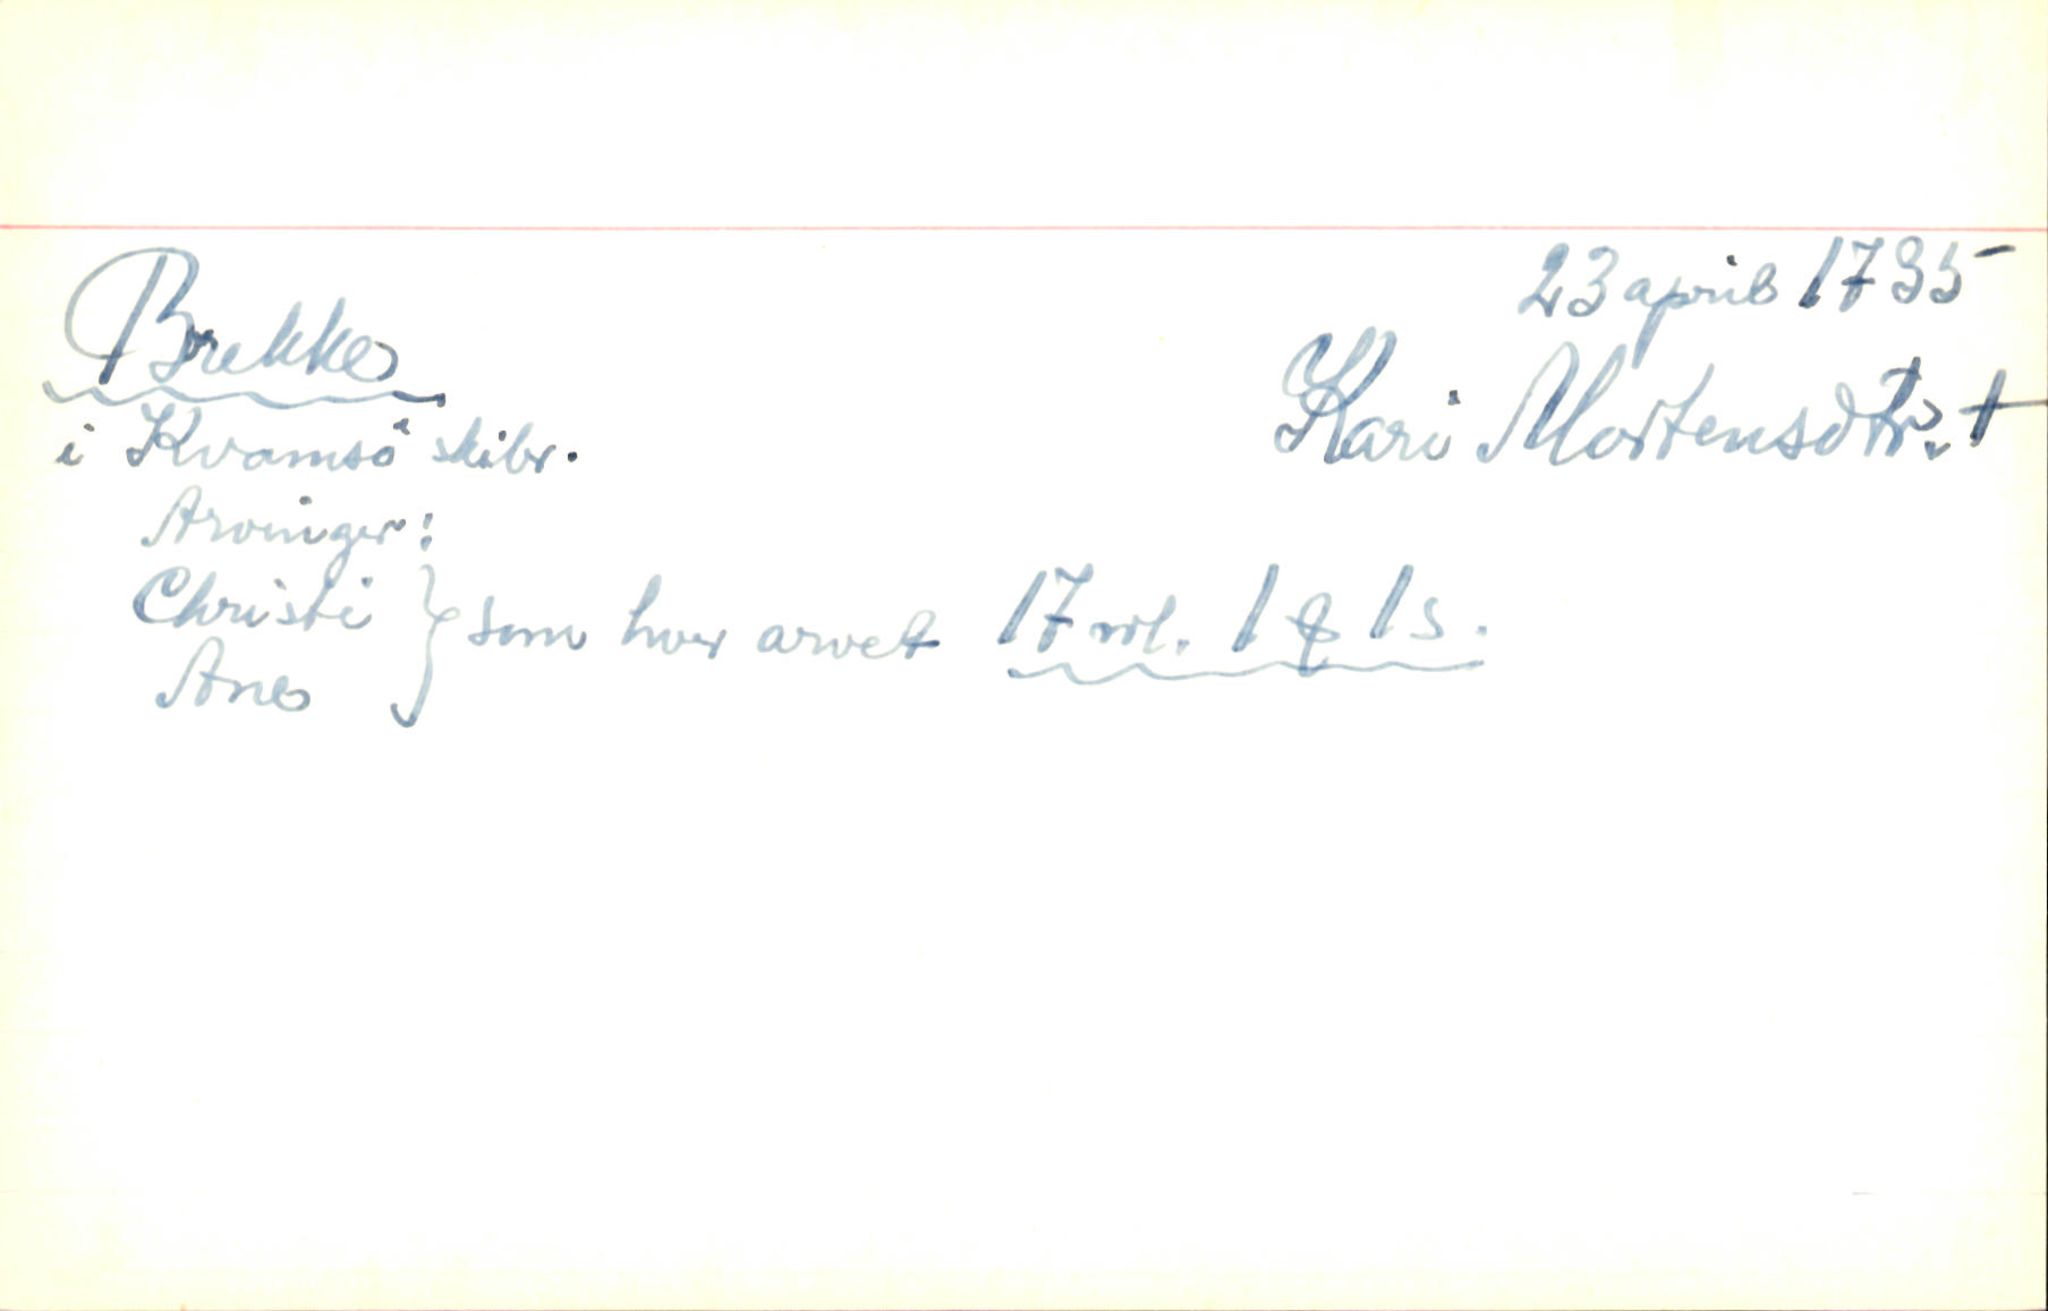 23 april 1735
Brekke
Kari Mortensdtr. †
i Kvamsö skibr.
Arvinger:
Christi
Ane
} som hver arvet 17 rdl. 1 ꝑ 1 s.